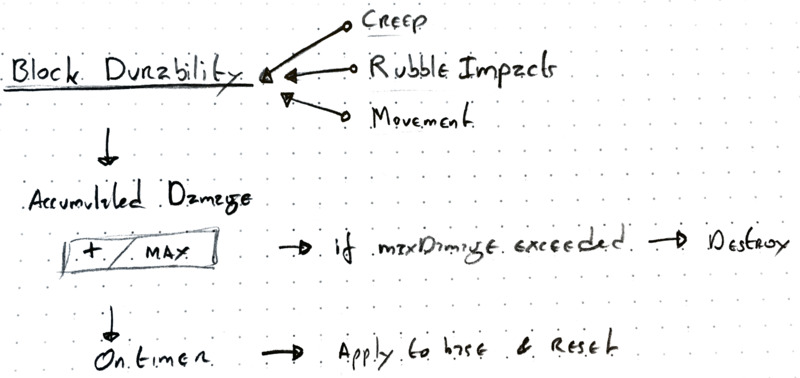 Creep
Block Durability
Rubble Impacts
Movement
Accumulated Damage
+ / MAX
if maxDamage exceeded
Destroy
On timer
Apply to base & Reset